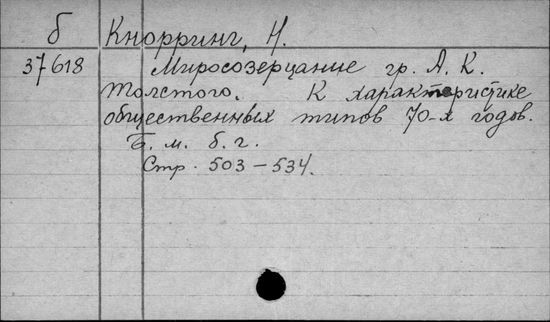 б Кнорринг, Н.
37618 Миросозерцание гр. А. К.
Толстого. К характеристике
общественных типов 70-х годов.
Б. м. б. г.
Стр. 503-534.